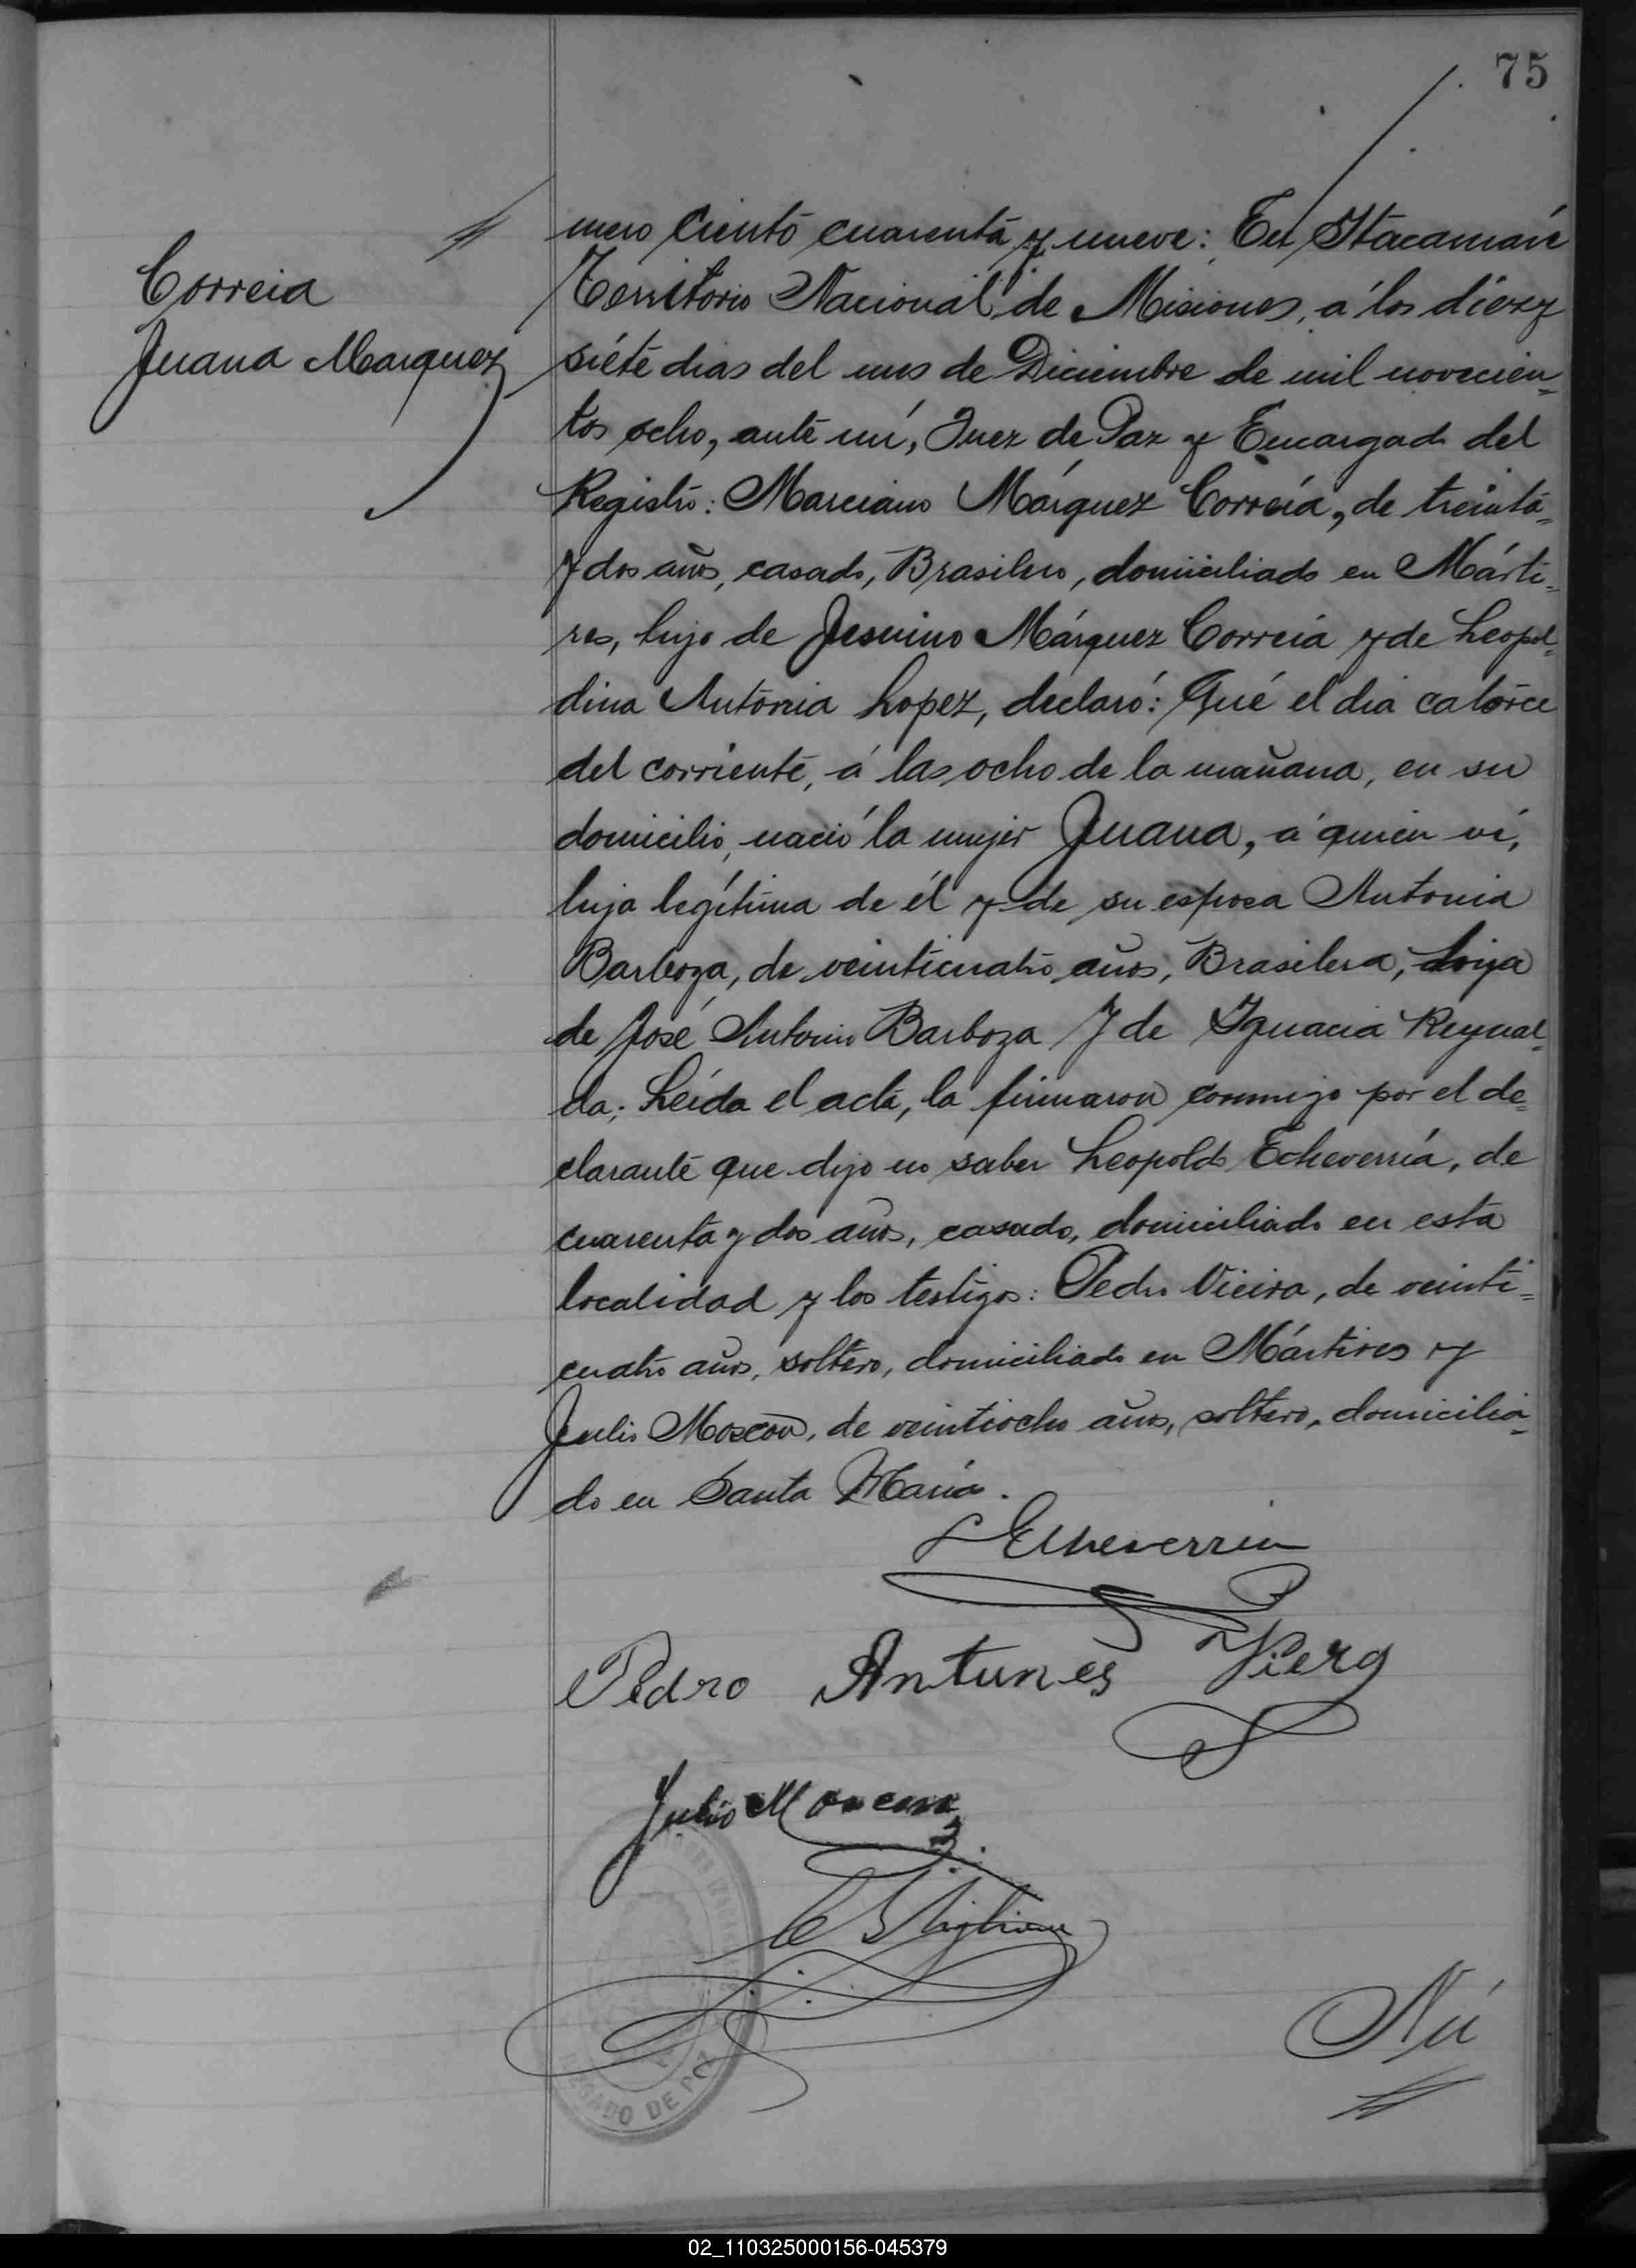 75
Correia
Juana Marquez
mero ciento cuarenta y nueve: En Itacaruaré
Territorio Nacional de Misiones, á los diez y
siete dias del mes de Diciembre de mil novecien=
tos ocho, ante mí, Juez de Paz y Encargado del
Registro: Marciano Márquez Correía, de treinta=
y dos años, casado, Brasilero, domiciliado en Márti=
res, hijo de Jesuino Márquez Correia y de Leopol=
dina Antonia Lopez, declaró: Qué el dia catorce
del corriente, á las ocho de la mañana, en su
domicilio, nació la mujer Juana, á quien ví,
hija legítima de él y de su esposa Antonia
Barboza, de veinticuatro años, Brasilera, hija
de José Antonio Barboza y de Ignacia Reynal=
da; Leída el acta, la firmaron conmigo por el de=
clarante que dijo no saber Leopoldo Echeverría, de
cuarenta y dos años, casado, domiciliado en esta
localidad y los testigos: Pedro Vieira, de veinti=
cuatro años, soltero, domiciliado en Mártires y
Julio Moscon, de veintiocho años, soltero, domicilia=
do en Santa María.
L Echeverria
Pedro Antunes Viera
Julio Moscon
Nú
GADO DE PAZ
02_110325000156-045379